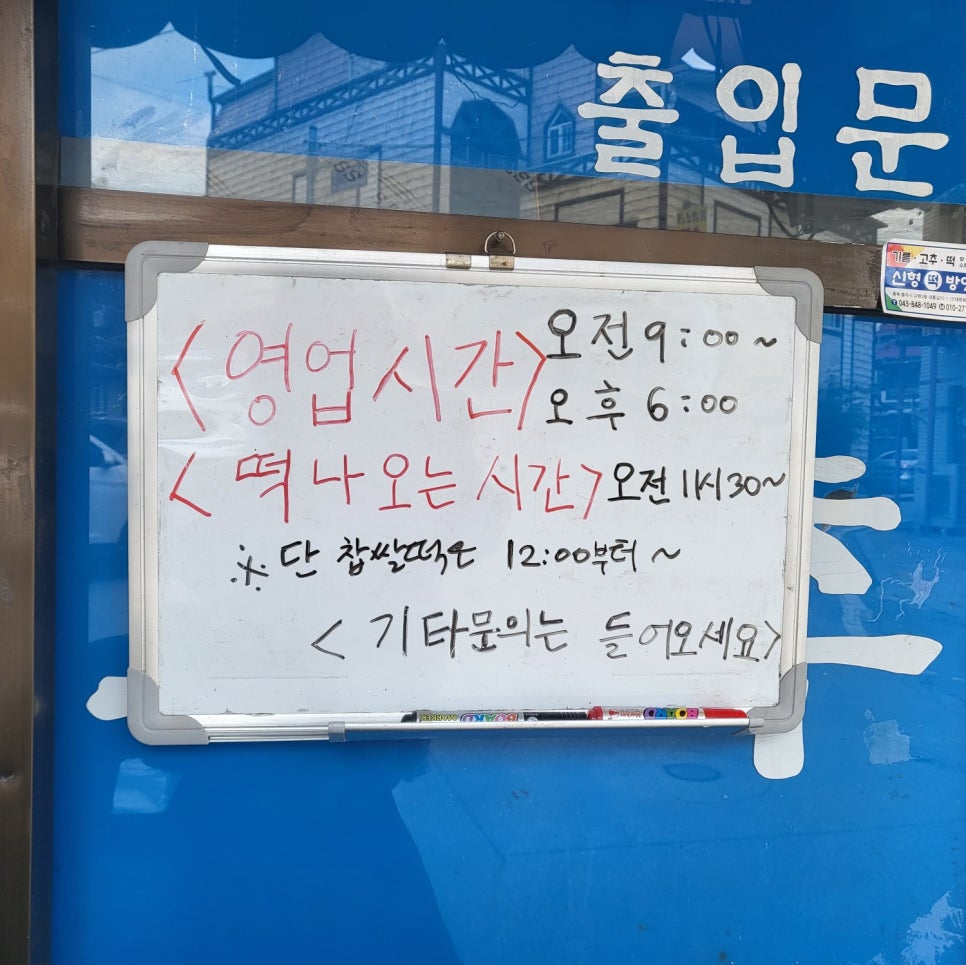 출입문
기름·고추·떡
신형 떡 방앗
043-848-1049
<영업시간> 오전 9:00~
오후 6:00
<떡 나오는 시간> 오전 11시30~
※ 단 찹쌀떡은 12:00부터~
<기타문의는 들어오세요>